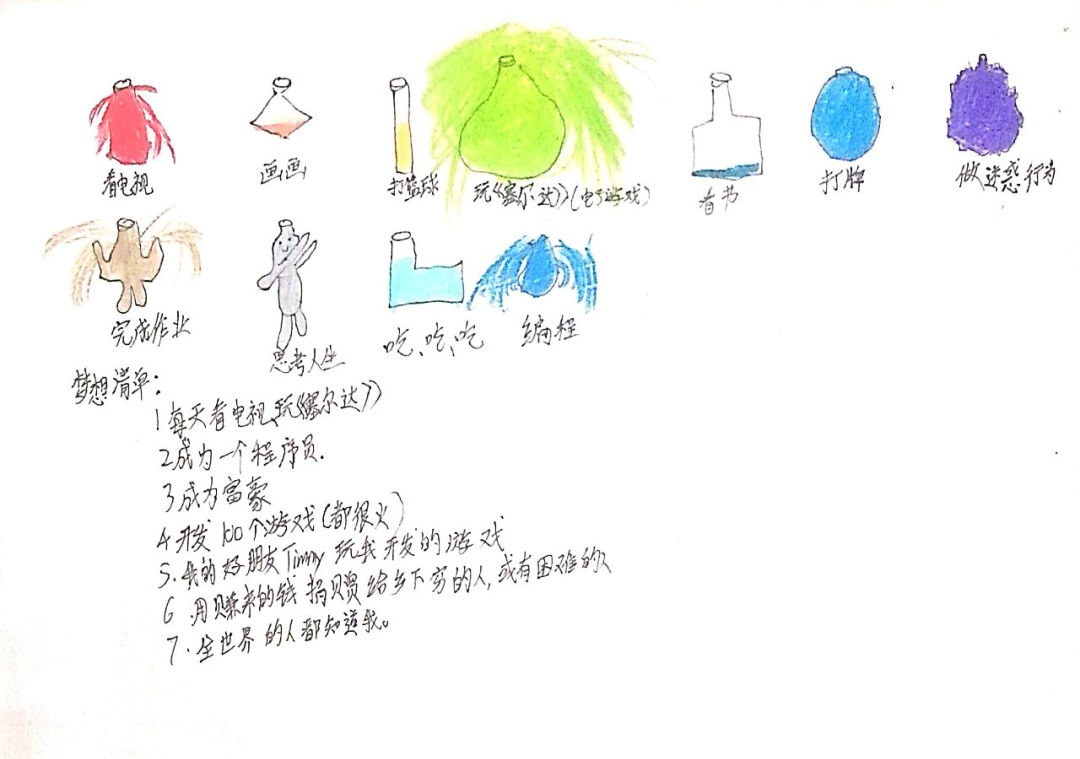 看电视 画画 打篮球 玩《塞尔达》(电子游戏) 看书 打牌 做迷惑行为
完成作业 思考人生 吃、吃、吃 编程
梦想清单:
1 每天看电视,玩《塞尔达》
2 成为一个程序员.
3 成为富豪
4 开发100个游戏(都很火)
5. 我的好朋友Timmy玩我开发的游戏
6 .用赚来的钱捐赠给乡下穷的人,或有困难的人
7. 全世界的人都知道我。